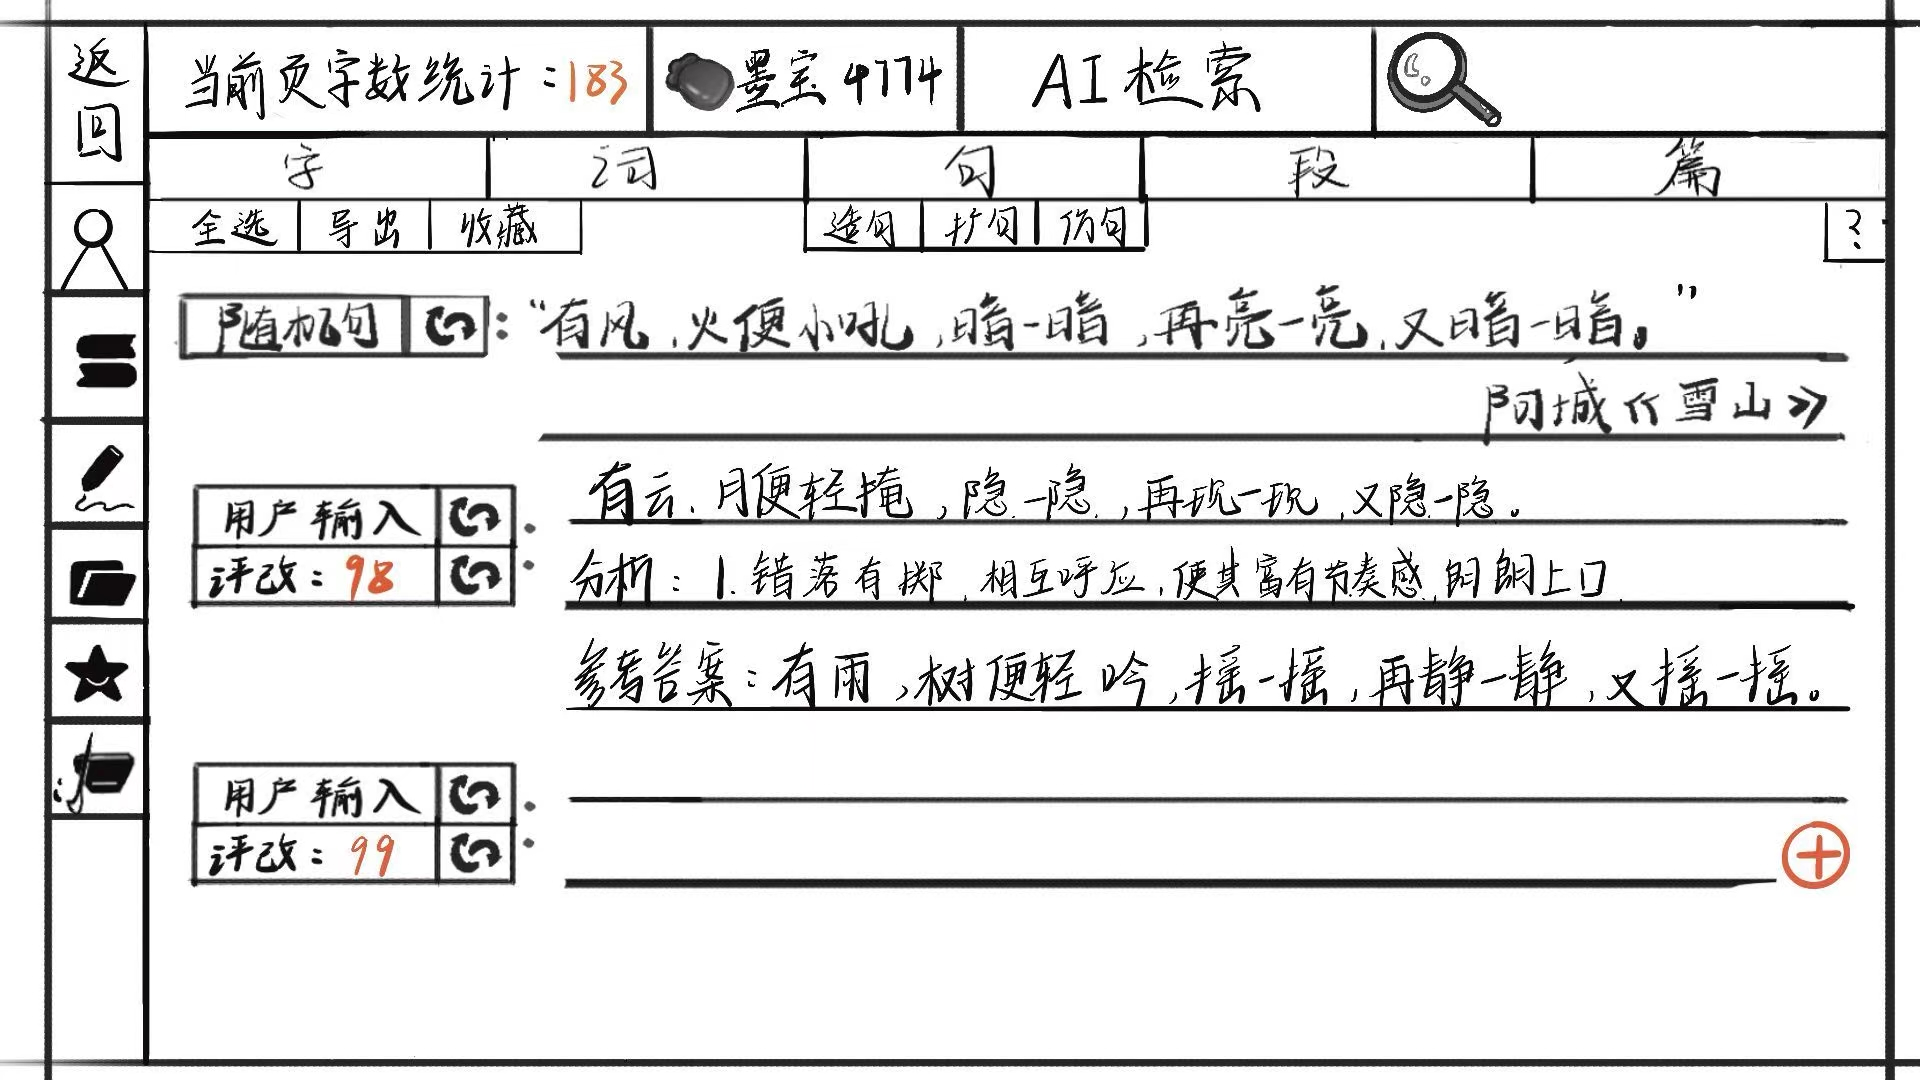 返回
当前页字数统计:183
墨宝 4774
AI 检索
字 词 句 段 篇
全选 导出 收藏 造句 扩句 仿句 ?
随机句:“有风,火便小吼,暗一暗,再亮一亮,又暗一暗。”
阿城《雪山》
用户输入: 有云,月便轻掩,隐一隐,再现一现,又隐一隐。
评改:98: 分析:1.错落有掷,相互呼应,使其富有节奏感,朗朗上口
参考答案:有雨,树便轻吟,摇一摇,再静一静,又摇一摇。
用户输入:
评改:99: